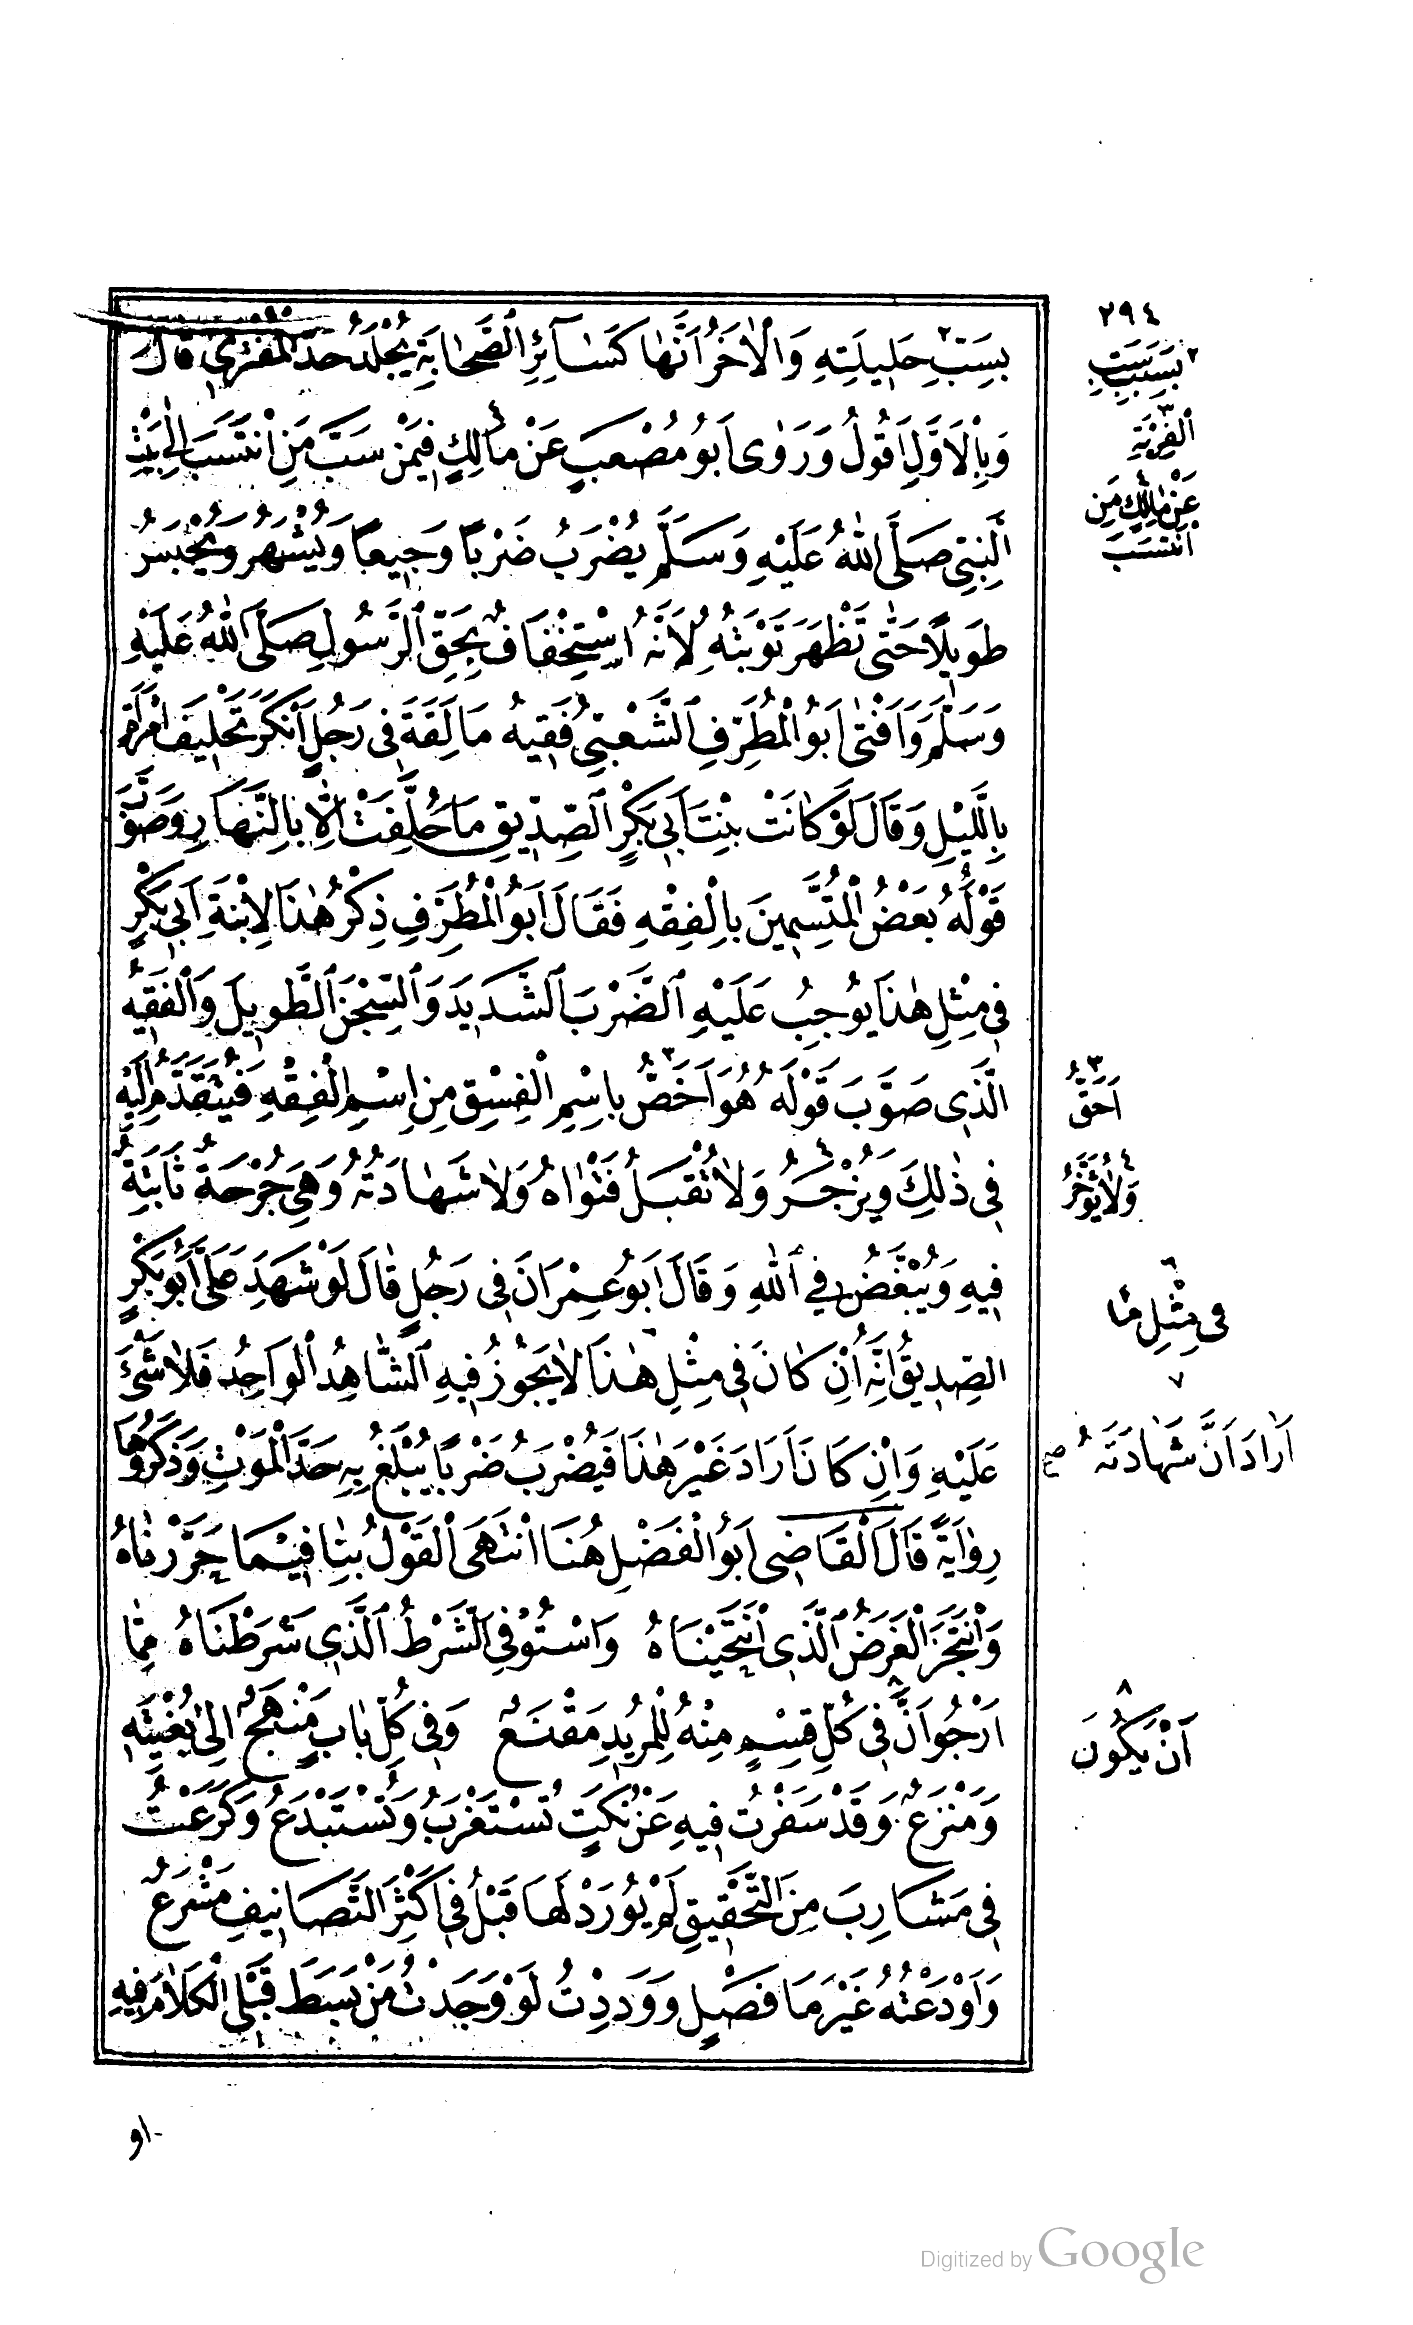 ٢٩٤
بِسَبِّ حَلِيلَتِهِ وَالْاٰخَرُ اَنَّهَا كَسَائِرِ الصَّحَابَةِ يُجْلَدُ حَدَّ الْمُفْتَرِي قَالَ
وَبِالْاَوَّلِ اَقُولُ وَرَوٰى اَبُو مُصْعَبٍ عَنْ مَالِكٍ فِيمَنْ سَبَّ مَنِ انْتَسَبَ اِلٰى بَيْتِ
النَّبِيِّ صَلَّى اللّٰهُ عَلَيْهِ وَسَلَّمَ يُضْرَبُ ضَرْبًا وَجِيعًا وَيُشْهَرُ وَيُحْبَسُ
طَوِيلًا حَتّٰى تَظْهَرَ تَوْبَتُهُ لِاَنَّهُ اسْتِخْفَافٌ بِحَقِّ الرَّسُولِ صَلَّى اللّٰهُ عَلَيْهِ
وَسَلَّمَ وَاَفْتٰى اَبُو الْمُطَرِّفِ الشَّعْبِيُّ فَقِيهُ مَالِقَةَ فِي رَجُلٍ اَنْكَرَ تَحْلِيفَ امْرَأَةٍ
بِاللَّيْلِ وَقَالَ لَوْ كَانَتْ بِنْتَ اَبِي بَكْرٍ الصِّدِّيقِ مَا حُلِّفَتْ اِلَّا بِالنَّهَارِ وَصَوَّبَ
قَوْلَهُ بَعْضُ الْمُتَّسِمِينَ بِالْفِقْهِ فَقَالَ اَبُو الْمُطَرِّفِ ذِكْرُ هٰذَا لِابْنَةِ اَبِي بَكْرٍ
فِي مِثْلِ هٰذَا يُوجِبُ عَلَيْهِ الضَّرْبَ الشَّدِيدَ وَالسِّجْنَ الطَّوِيلَ وَالْفَقِيهُ
الَّذِي صَوَّبَ قَوْلَهُ هُوَ اَخَصُّ بِاسْمِ الْفِسْقِ مِنِ اسْمِ الْفِقْهِ فَيُتَقَدَّمُ اِلَيْهِ
فِي ذٰلِكَ وَيُزْجَرُ وَلَا تُقْبَلُ فَتْوَاهُ وَلَا شَهَادَتُهُ وَهِيَ جُرْحَةٌ ثَابِتَةٌ
فِيهِ وَيُبْغَضُ فِي اللّٰهِ وَقَالَ اَبُو عِمْرَانَ فِي رَجُلٍ قَالَ لَوْ شَهِدَ عَلَيَّ اَبُو بَكْرٍ
الصِّدِّيقُ اَنَّهُ اِنْ كَانَ فِي مِثْلِ هٰذَا لَا يَجُوزُ فِيهِ الشَّاهِدُ الْوَاحِدُ فَلَا شَيْءَ
عَلَيْهِ وَاِنْ كَانَ اَرَادَ غَيْرَ هٰذَا فَيُضْرَبُ ضَرْبًا يُبْلَغُ بِهِ حَدَّ الْمَوْتِ وَذَكَرُوهَا
رِوَايَةً قَالَ الْقَاضِي اَبُو الْفَضْلِ هُنَا انْتَهَى الْقَوْلُ بِنَا فِيمَا حَرَّرْنَاهُ
وَانْتَجَزَ الْغَرَضُ الَّذِي انْتَحَيْنَاهُ وَاسْتُوْفِيَ الشَّرْطُ الَّذِي شَرَطْنَاهُ مِمَّا
اَرْجُو اَنَّ فِي كُلِّ قِسْمٍ مِنْهُ لِلْمُرِيدِ مَقْنَعٌ وَفِي كُلِّ بَابٍ مَنْهَجٌ اِلٰى بُغْيَتِهِ
وَمَنْزَعٌ وَقَدْ سَفَرْتُ فِيهِ عَنْ نُكَتٍ تُسْتَغْرَبُ وَتُسْتَبْدَعُ وَكَرَعْتُ
فِي مَشَارِبَ مِنَ التَّحْقِيقِ لَمْ يُورَدْ لَهَا قَبْلُ فِي اَكْثَرِ التَّصَانِيفِ مَشْرَعٌ
وَاَوْدَعْتُهُ غَيْرَ مَا فَصْلٍ وَوَدِدْتُ لَوْ وَجَدْتُ مَنْ بَسَطَ قَبْلِي الْكَلَامَ فِيهِ
٢ بِسَبَبِ سَبِّ
٣ الْفِرْيَةِ
٤ عَنْ مَالِكٍ مَنِ
انْتَسَبَ
٣ اَحَقُّ
٤ وَلَا يُؤَخَّرُ
٦ فِي مِثْلِ مَا
٧ اَرَادَ اَنَّ شَهَادَتَهُ صح
٨ اَنْ يَكُونَ
او
Digitized by Google